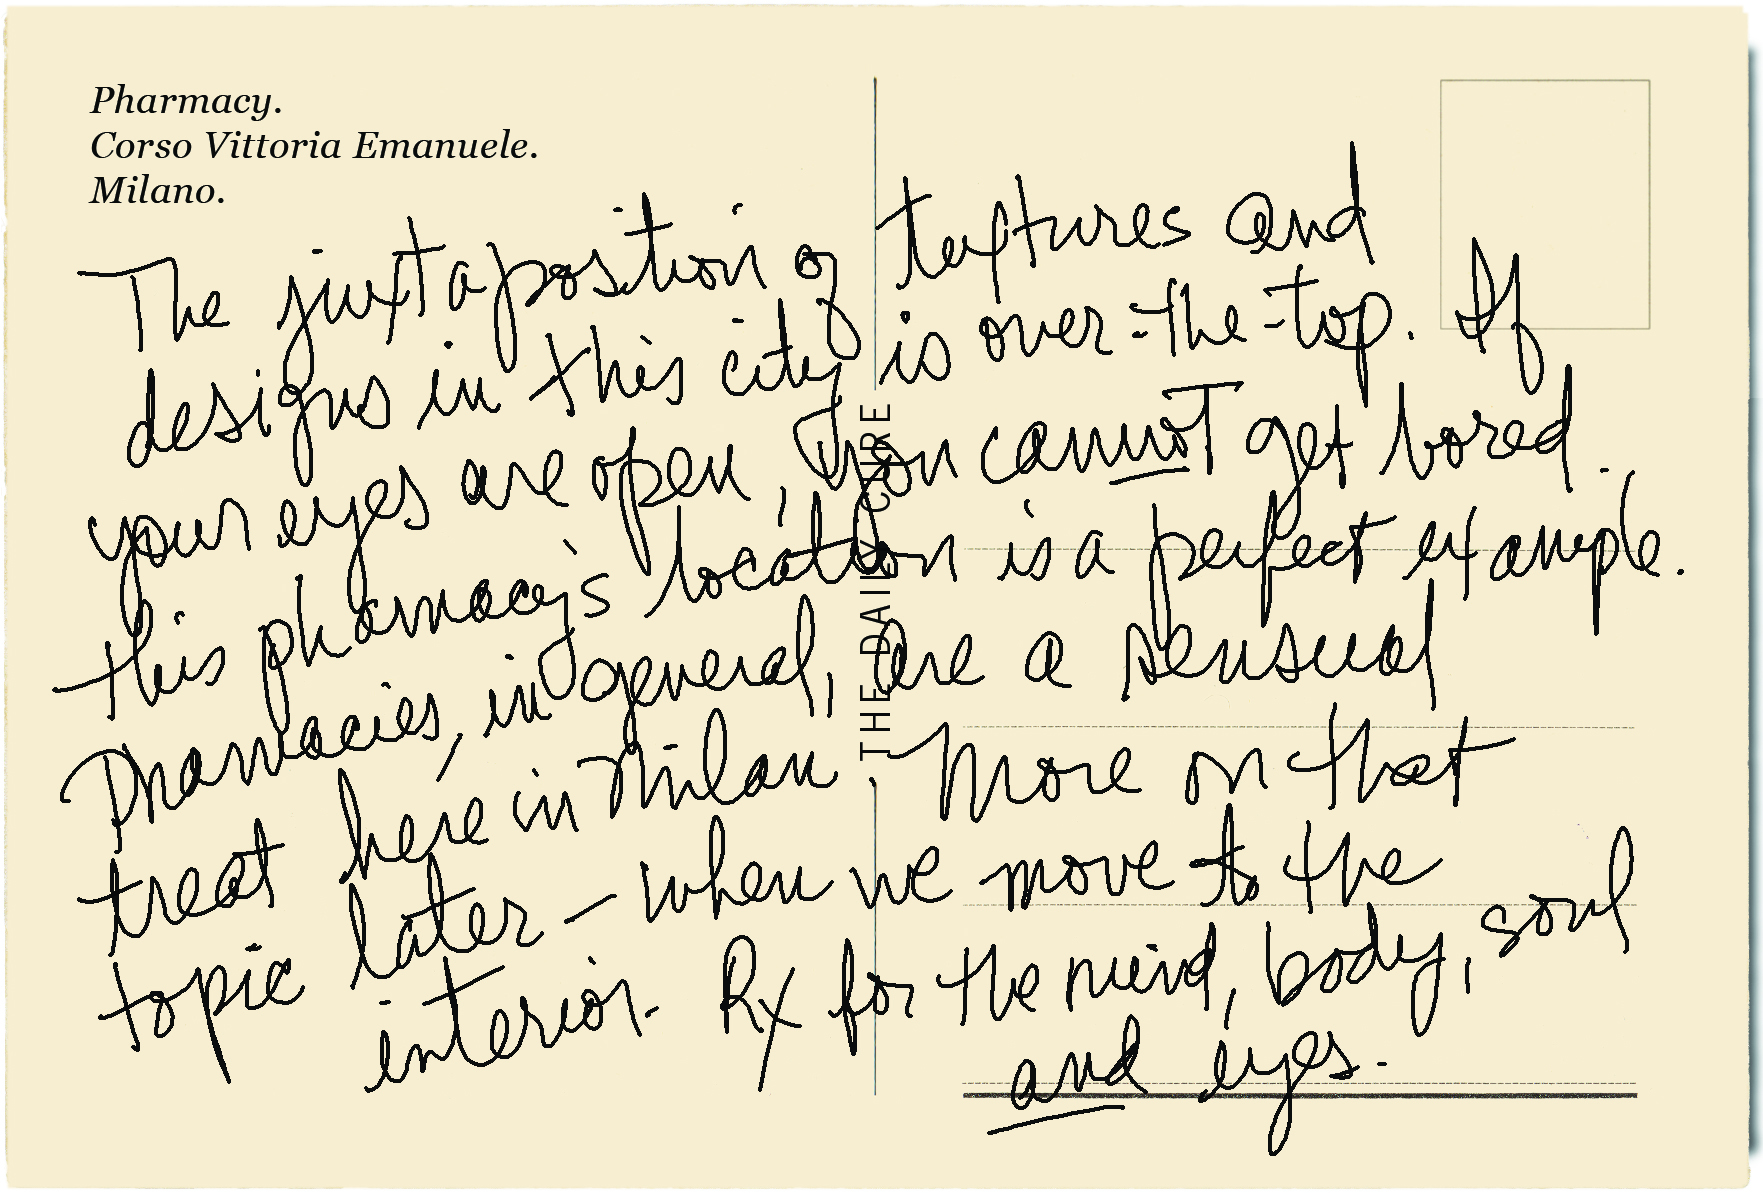 Pharmacy.
Corso Vittoria Emanuele.
Milano.
The juxtaposition of textures and
designs in this city is over-the-top. If
your eyes are open, you cannot get bored.
This pharmacy's location is a perfect example.
Pharmacies, in general, are a sensual
treat here in Milan. More on that
topic later – when we move to the
interior. Rx for the mind, body, soul
and eyes.
THE DAILY CURE